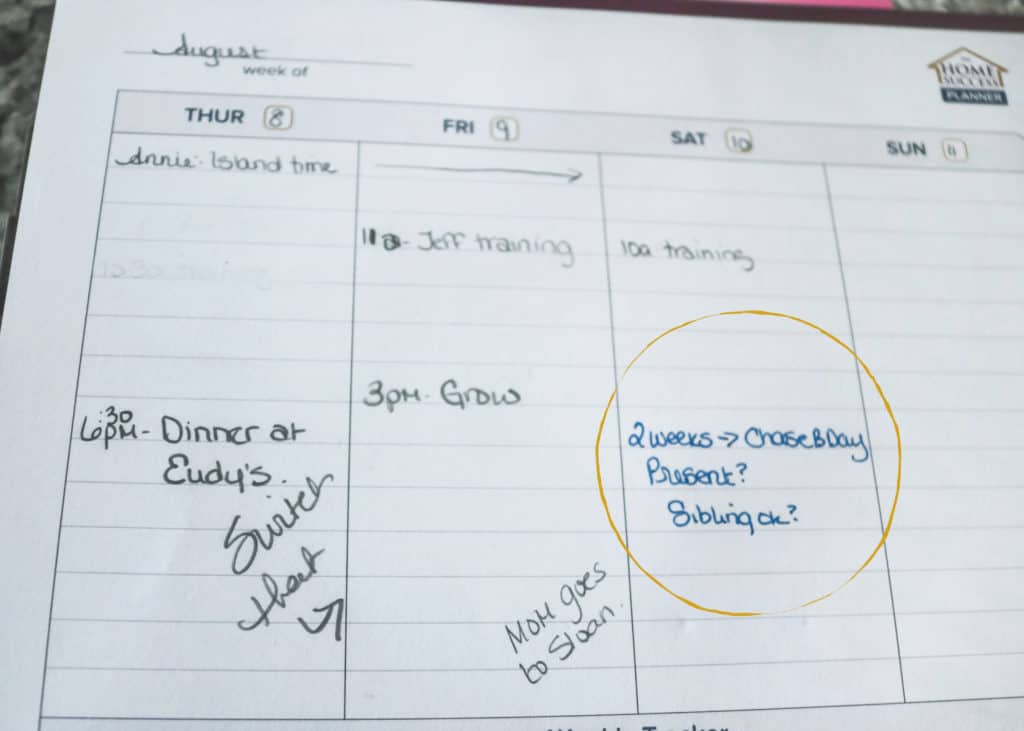 August
week of
THE
HOME
SUCCESS
PLANNER
THUR 8
FRI 9
SAT 10
SUN 11
Annie - Island time
11a - Jeff training
10a training
1030 training
3pm - Grow
6:30pm - Dinner at
Eudy's.
2 weeks -> Chase B Day
Present?
Sibling ok?
Mom goes
to Sloan.
Weekly Tracker